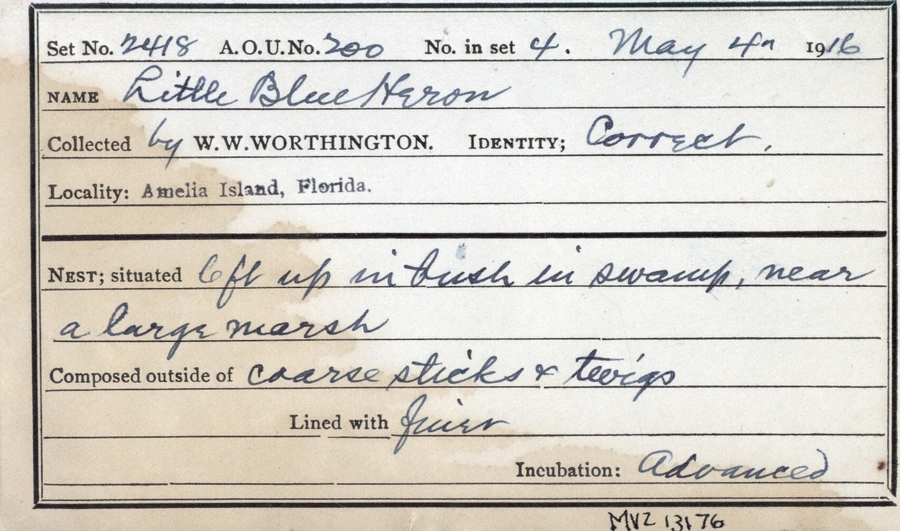 Set No. 2418 A.O.U.No. 200 No. in set 4. May 4th 1916
NAME Little Blue Heron
Collected by W.W.WORTHINGTON. IDENTITY; Correct.
Locality: Amelia Island, Florida.
NEST; situated 6ft up in bush in swamp, near
a large marsh
Composed outside of coarse sticks & twigs
Lined with finer
Incubation: Advanced
MVZ 13176